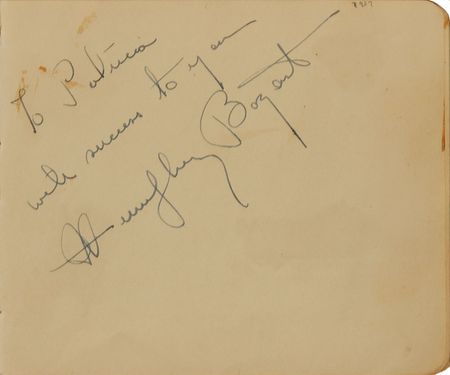 To Patricia
with success to you
Humphrey Bogart